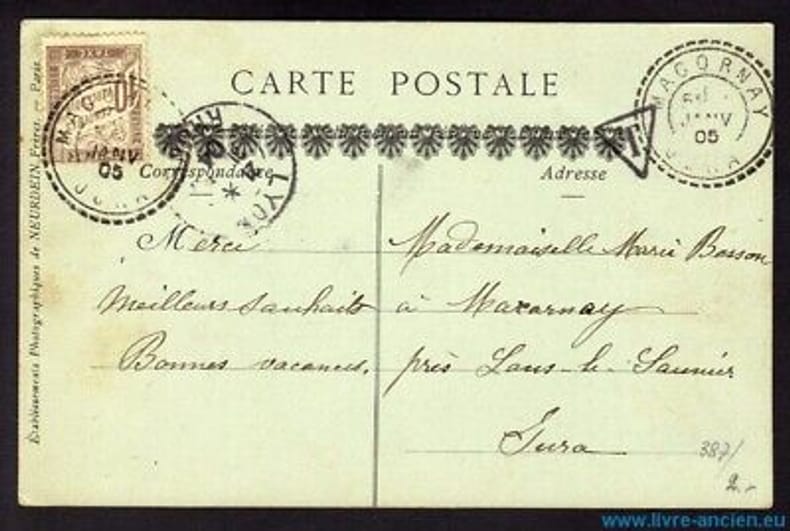 CARTE POSTALE
Correspondance
Adresse
Merci
Meilleurs souhaits
Bonnes vacances.
Mademoiselle Marie Bosson
à Macornay
près Lons-le-Saunier
Jura
Établissements Photographiques de NEURDEIN Frères. — Paris.
10
MACORNAY
JANV
05
JURA
LYON
T
MACORNAY
JANV
05
JURA
387/
2.-
www.livre-ancien.eu